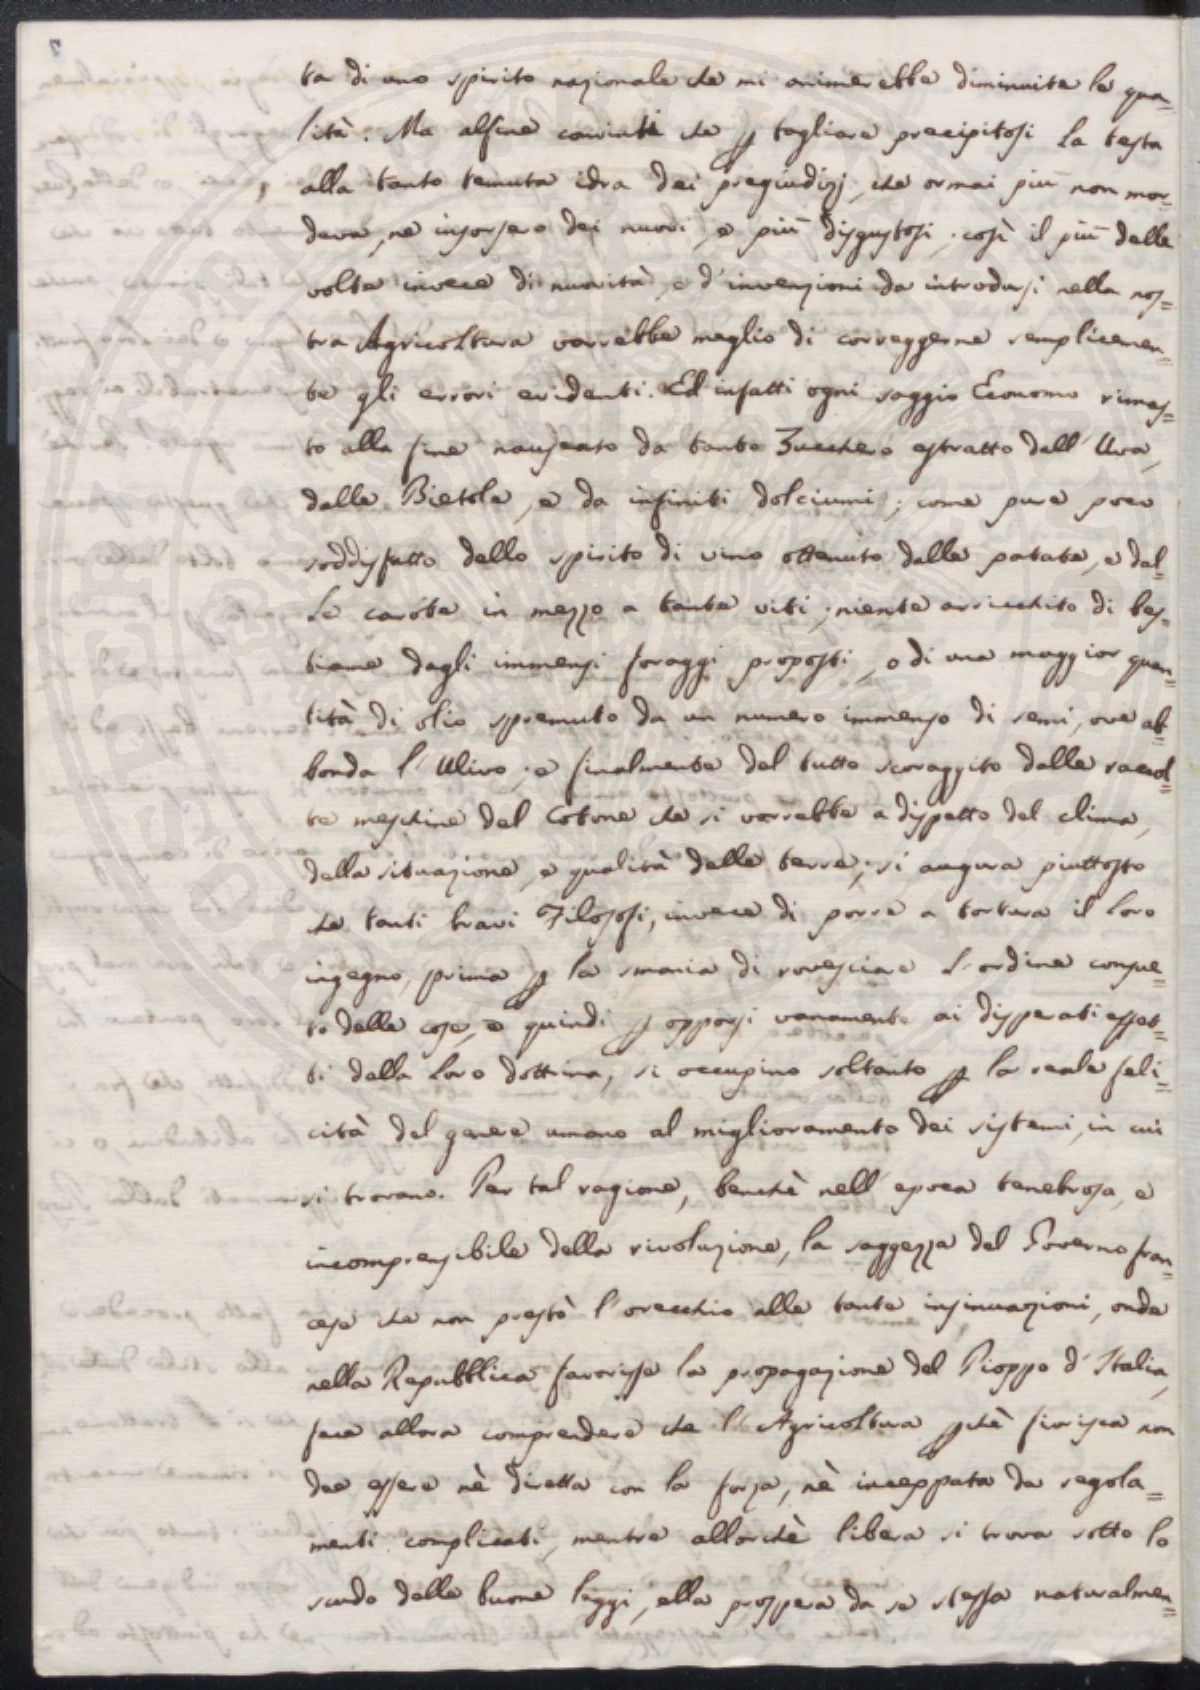 ta di uno spirito nazionale che mi animerebbe diminuite le qua=
lità. Ma alfine convinti che p tagliare precipitosi la testa
alla tanto temuta idra dei pregiudizj, che ormai più non mor=
deva, ne insorsero dei nuovi, e più disgustosi, così il più delle
volte invece di novità, e d'invenzioni da introdursi nella nos=
tra Agricoltura vorrebbe meglio di correggerne semplicemen=
te gli errori evidenti. Ed infatti ogni saggio Economo rimas=
to alla fine nauseato da tanto Zucchero estratto dall'Uva,
dalle Bietole, e da infiniti dolciumi; come pure poco
soddisfatto dello spirito di vino ottenuto dalle patate, e dal=
le carote in mezzo a tante viti; niente arricchito di bes=
tiame dagli immensi foraggi proposti, o di una maggior quan=
tità di olio spremuto da un numero immenso di semi, ove ab=
bonda l'Ulivo; e finalmente del tutto scoraggito dalle raccol=
te meschine del Cotone che si vorrebbe a dispetto del clima,
della situazione, e qualità delle terre; si augura piuttosto
che tanti bravi Filosofi, invece di porre a tortura il loro
ingegno, prima p la smania di rovesciare l'ordine consue=
to delle cose, e quindi p opporsi vanamente ai disperati effet=
ti della loro dottrina, si occupino soltanto p la reale feli=
cità del genere umano al miglioramento dei sistemi, in cui
si trovano. Per tal ragione, benchè nell'epoca tenebrosa, e
incomprensibile della rivoluzione, la saggezza del Governo fran=
cese che non prestò l'orecchio alle tante insinuazioni, onde
nella Repubblica favorisse la propagazione del Pioppo d'Italia,
fece allora comprendere che l'Agricoltura pchè fiorisca non
dee essere nè diretta con la forza, nè inceppata da regola=
menti complicati, mentre allorchè libera si trova sotto lo
scudo delle buone leggi, ella prospera da se stessa naturalmen=